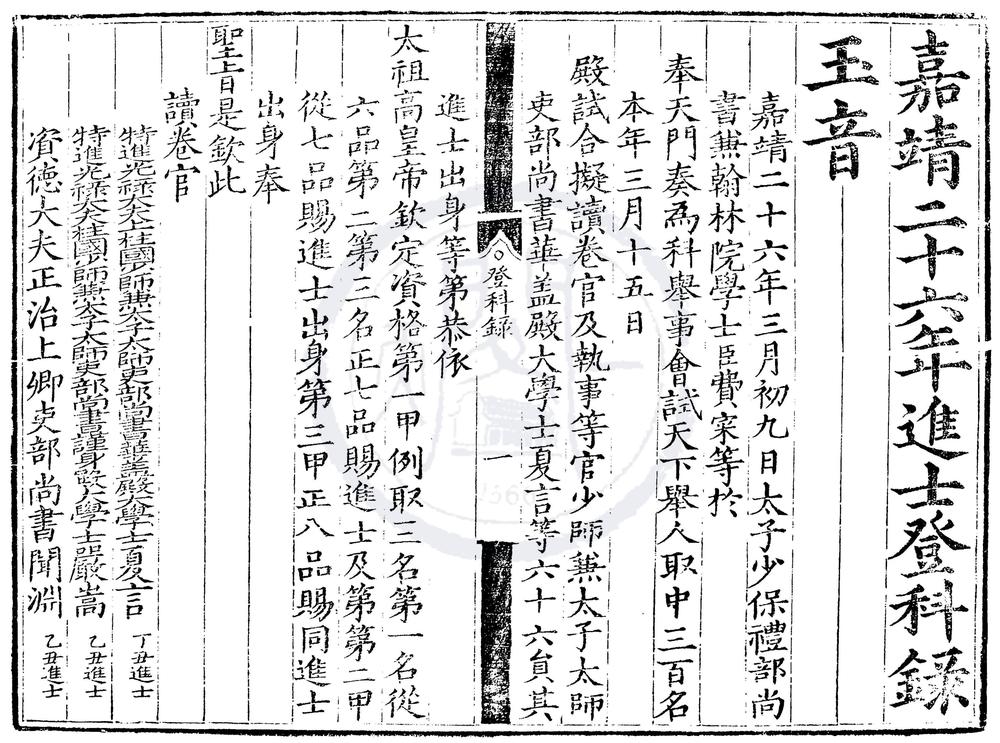 嘉靖二十六年進士登科録
玉音
嘉靖二十六年三月初九日太子少保禮部尚
書兼翰林院學士臣費寀等於
奉天門奏爲科舉事會試天下舉人取中三百名
本年三月十五日
殿試合擬讀卷官及執事等官少師兼太子太師
吏部尚書華盖殿大學士夏言等六十六員其
登科録
一
進士出身等第恭依
太祖高皇帝欽定資格第一甲例取三名第一名從
六品第二第三名正七品賜進士及第第二甲
從七品賜進士出身第三甲正八品賜同進士
出身奉
聖旨是欽此
讀卷官
特進光祿大夫上柱國少師兼太子太師吏部尚書華盖殿大學士夏言 丁丑進士
特進光祿大夫柱國少師兼太子太師吏部尚書謹身殿大學士嚴嵩 乙丑進士
資德大夫正治上卿吏部尚書聞淵 乙丑進士